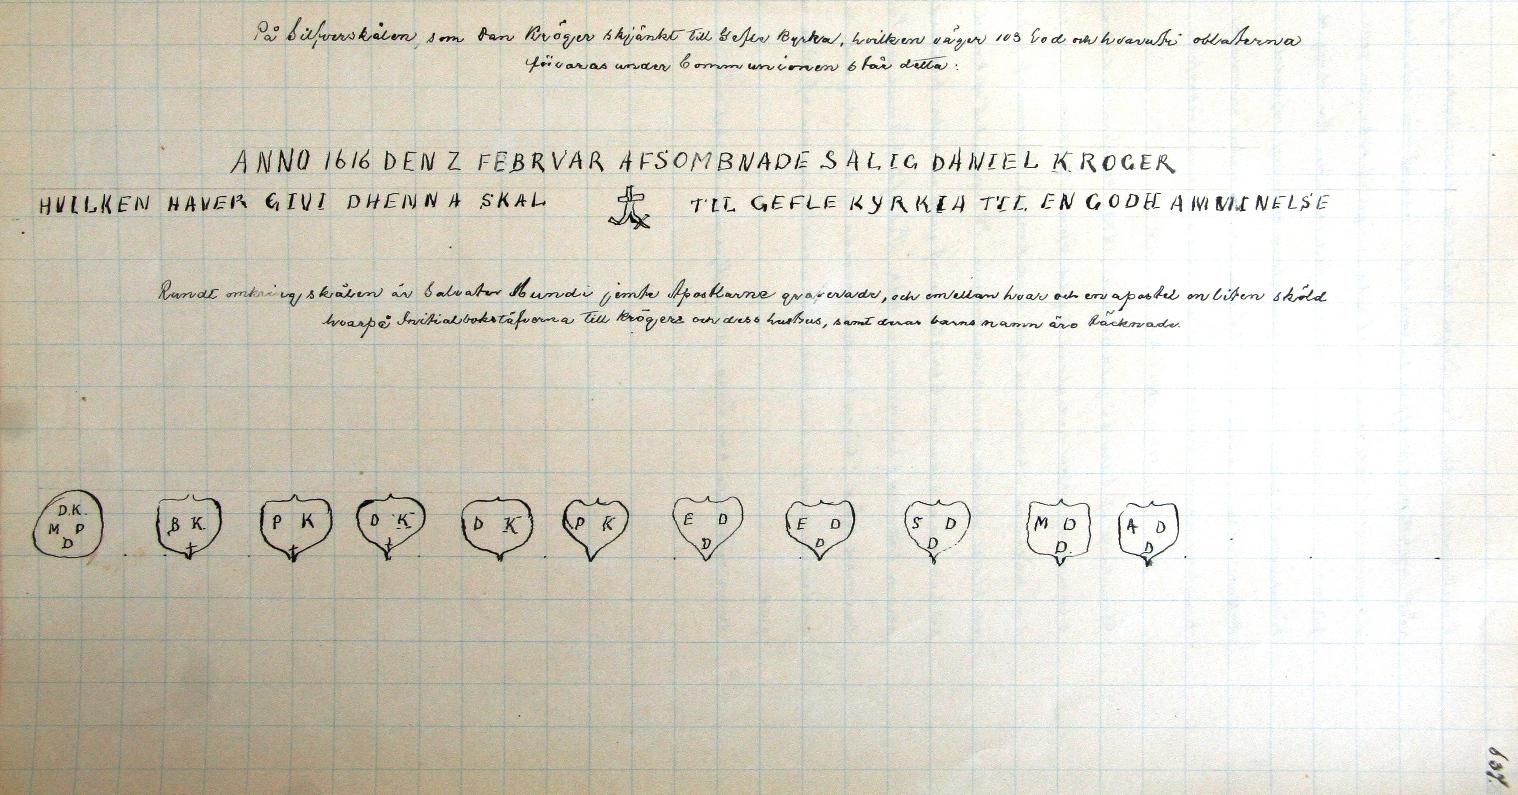 På Silfverskålen, som Dan Kröger skjänkt till Gefle Kyrka, hvilken väger 103 Lod och hvaruti oblaterna
förvaras under Communionen står detta:
ANNO 1616 DEN 2 FEBRVAR AFSOMBNADE SALIG DANIEL KROGER
HVILKEN HAVER GIVI DHENNA SKAL TIL GEFLE KYRKIA TIL EN GODH AMMINELSE
Rundt omkring skålen är Salvator Mundi jemte Apostlarne graverade, och emellan hvar och en apostel en liten sköld
hvarpå Initialbokstäfverna till Krögers och dess hustrus, samt deras barns namn äro täcknade.
D.K. M P D
B K
P K
D K
D K
P K
E D D
E D D
S D D
M D D
A D D
637.